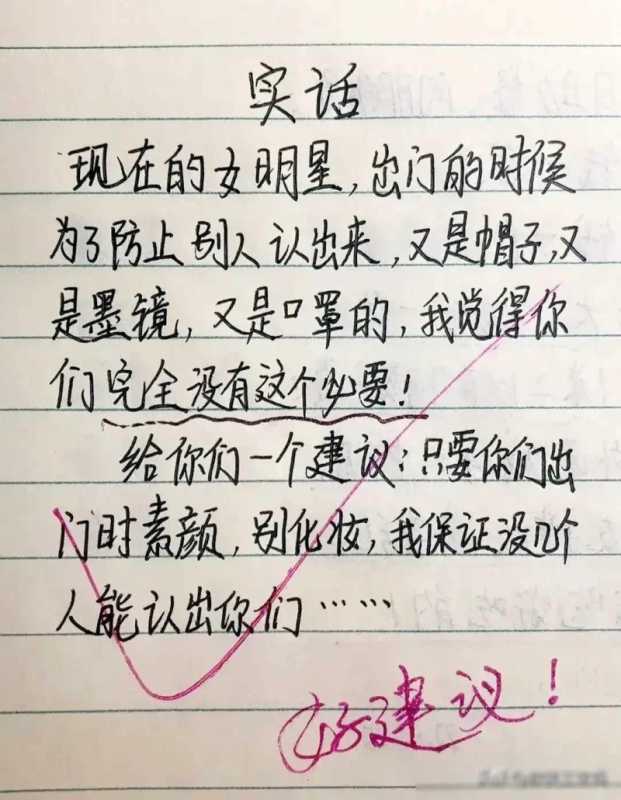 实话
现在的女明星,出门的时候
为了防止别人认出来,又是帽子,又
是墨镜,又是口罩的,我觉得你
们完全没有这个必要!
给你们一个建议:只要你们出
门时素颜,别化妆,我保证没几个
人能认出你们……
好建议!